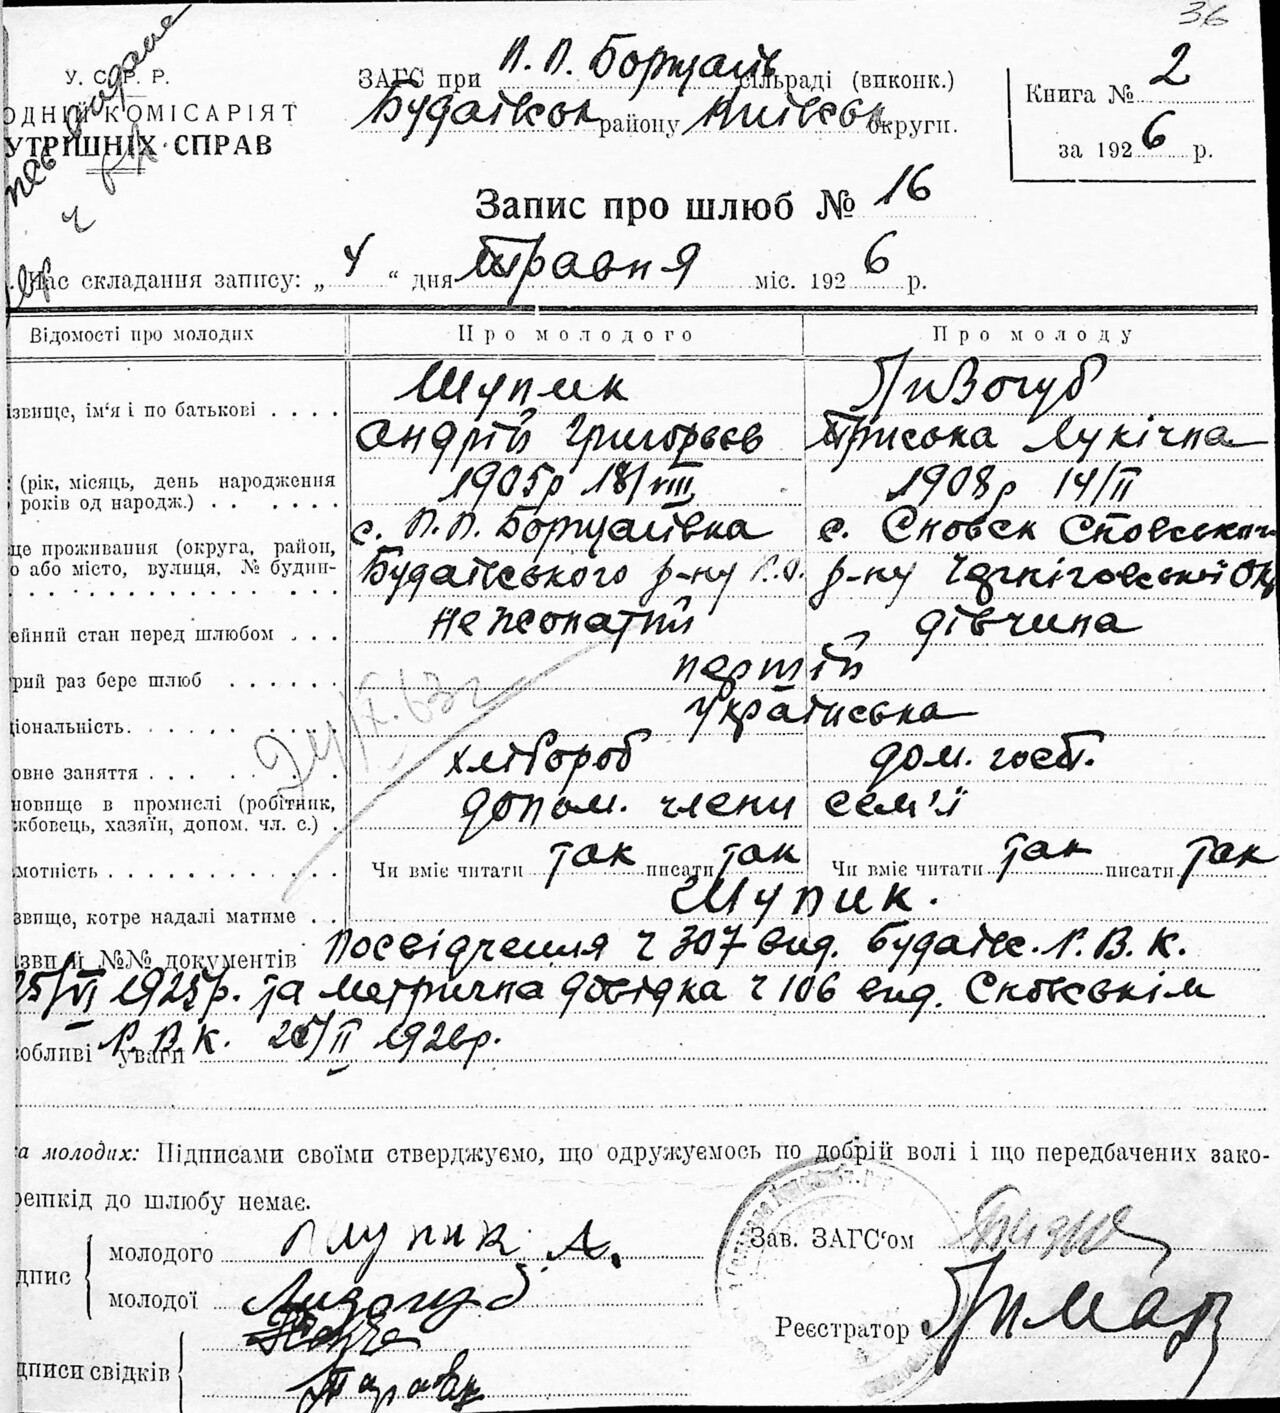 36
У. С. Р. Р.
ОДНІЙ КОМІСАРІЯТ
УТРІШНІХ СПРАВ
ЗАГС при П. П. Борщагів сільраді (виконк.)
Будаївськ району Київськ округи.
Книга № 2
за 1926 р.
Запис про шлюб № 16
Час складання запису: „ 4 “ дня Травня міс. 1926 р.
Відомості про молодих Про молодого Про молоду
ізвище, ім'я і по батькові . . . . Шупик Лизогуб
Андрій Григорьєв Лукічна
(рік, місяць, день народження 1905р 18/VIII 1908р 14/II
років од народж.) . . . . . . .
с. П. П. Борщагівка с. Сновск Сновського
це проживання (округа, район,
о або місто, вулиця, № будин- Будаївського р-ну К.О. р-ну Чернігівської Окр
ейний стан перед шлюбом . . . нежонатий дівчина
рий раз бере шлюб . . . . . . перший
ціональність. . . . . . . . . Українська
овне заняття . . . . . . . хлібороб дом. госп.
новище в промислі (робітник, допом. члени сем'ї
жбовець, хазяїн, допом. чл. с.) .
24/IX.63г
мотність . . . . . . . . . . . . Чи вміє читати так писати так Чи вміє читати так писати так
звище, котре надалі матиме . . Шупик.
азви й №№ документів Посвідчення ч 307 вид. Будаївс. Р. В. К.
25/VI 1925р. та метрична довідка ч 106 вид. Сновськім
собливі уваги Р. В. К. 25/II 1926р.
а молодих: Підписами своїми стверджуємо, що одружуємось по добрій волі і що передбачених зако-
решкід до шлюбу немає.
дпис молодого Шупик А.
молодої Лизогуб
дписи свідків
Зав. ЗАГС'ом
Реєстратор